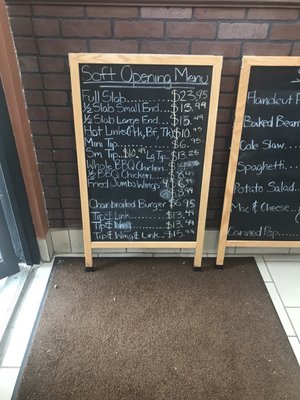 Soft Opening Menu
Full Slab $23.95
½ Slab Small End $13.49
½ Slab Large End $15.49
Hot Links (Prk, Bf, Tk) $10.49
Mini Tip $6.95
Sm. Tip $10.99 Lg Tip $13.25
Whole BBQ Chicken
½ BBQ Chicken
Fried Jumbo Wings
Charbroiled Burger $6.95
Tip & Link $13.49
Tip & $13.49
Tip & Wing & Link $15.99
Handcut F
Baked Bean
Cole Slaw
Spaghetti
Potato Salad
Mac & Cheese
Canned Pop